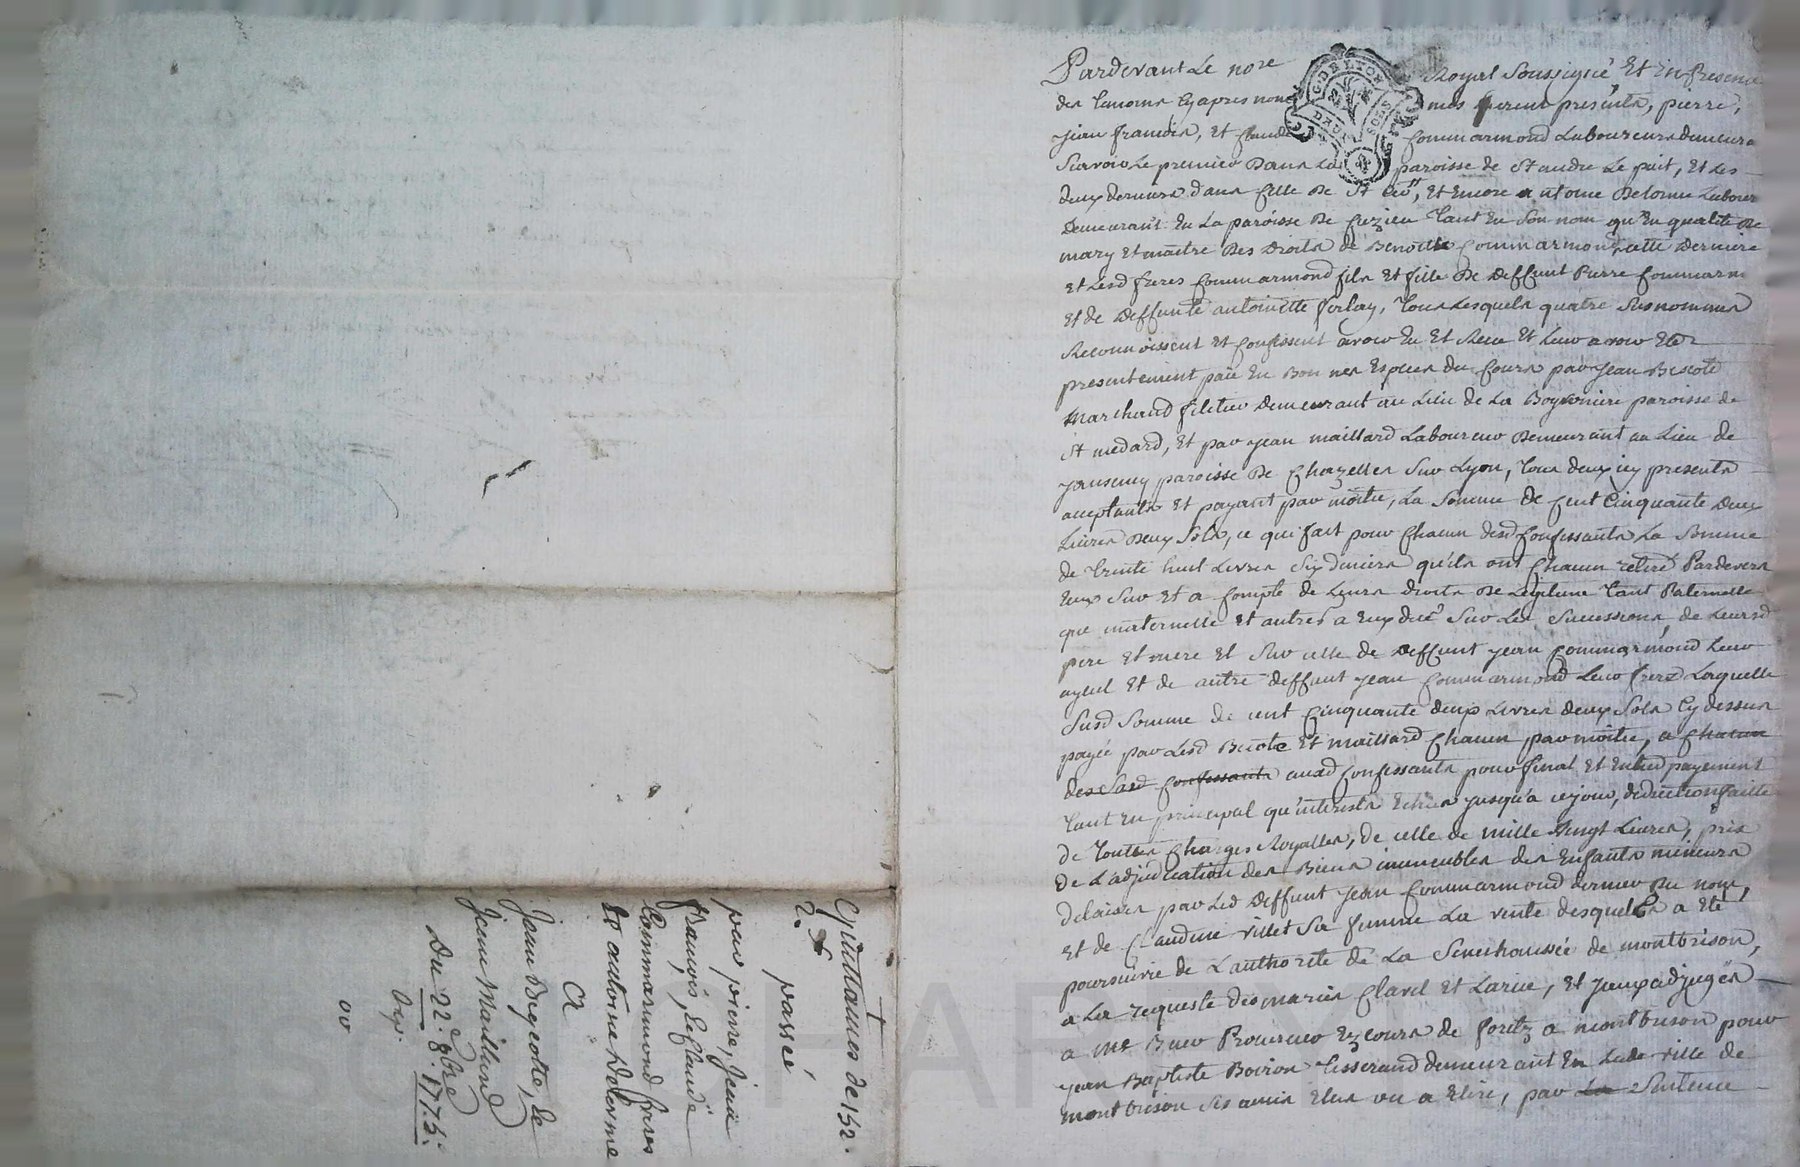 Pardevant Le nore Royal Soussigné, Et En presence
des temoins Cy apres nommés furent presents, pierre,
jean francois, et Claude Commarmond Laboureurs demeura
Scavoir Le premier dans La paroisse de St andre Le puit, Et Les
deux derniers dans celle de St, Et Encore antoine Delorme Labour
demeurant En La paroisse de Cuzieu tant En Son nom qu'En qualité de
mary Et maitre des droits de Benoitte Commarmond, cette derniere
et Lesd freres Commarmond fils Et fille de deffunt Pierre Commarm
Et de deffunte antoinette, Tous Lesquels quatre susnommes
Reconnoissent et Confessent avoir Eu Et Receu Et Leur avoir Eté
presentement paié En Bonnes Especes du Cours par Jean Bicoté
Marchand filetier demeurant au Lieu de La paroisse de
St medard, Et par jean maillard Laboureur demeurant au Lieu de
paroisse de Chazelles sur Lyon, Tous deux icy presents
acceptants Et payant par moitié, La Somme de Cent Cinquante deux
Livres deux Sols, ce qui fait pour Chacun desd Confessants La Somme
de trente huit Livres Six deniers qu'ils ont Chacun retiré Pardevers
Eux Sur Et a Compte de Leurs droits de Legitime tant Paternelle
que maternelle Et autres a Eux dué Sur Les Successions de Leursd
pere Et mere Et Sur celle de deffunt jean Commarmond Leur
ayeul Et de autre deffunt jean Commarmond Leur frere Laquelle
Susd Somme de cent Cinquante deux Livres deux Sols Cy dessus
payée par Lesd Bicote Et maillard Chacun par moitié, a Chacun
des Sasd Confessants ausd Confessants pour final Et Entier payement
tant En principal qu'interets Echus jusqu'a ce jour, deduction faitte
de toutes Charges Royalles, de celle de mille vingt Livres, prix
de L'adjudication des Biens immeubles des Enfants mineurs
delaissés par Led deffunt jean Commarmond dernier du nom,
et de Claudine villet Sa femme La vente desquels a Eté
poursuivie de L'authorité de La Senechaussée de montbrison,
a La requeste des mariés Clavel Et Larue, Et adjugés
a Me Procureur Ez Cours de forëz a montbrison pour
jean Baptiste Boiron tisserand demeurant En Lade ville de
montbrison Ses amis Elus ou a Elire, par La Sentence
Quittances de 152.
2s
passée
par pierre, jean
francois, & claude
Commarmond freres
& antoine delorme
a
Jean Begcotte, &
Jean Maillard
Du 22. 8bre 1775.
Exp.